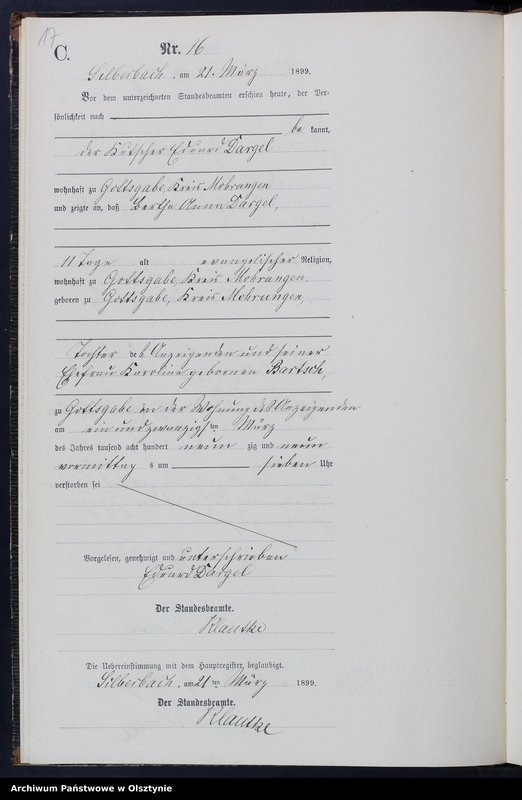 17
C.
Nr. 16
Silberbach, am 21. März 1899.
Vor dem unterzeichneten Standesbeamten erschien heute, der Per-
sönlichkeit nach
be kannt,
der Kutscher Eduard Dargel
wohnhaft zu Gottsgabe, Kreis Mohrungen
und zeigte an, daß Bertha Anna Dargel,
11 Tage alt evangelischer Religion,
wohnhaft zu Gottsgabe, Kreis Mohrungen
geboren zu Gottsgabe, Kreis Mohrungen
Tochter des Anzeigenden und seiner
Ehefrau Karoline geborenen Bartsch,
zu Gottsgabe in der Wohnung des Anzeigenden
am ein und zwanzigsten März
des Jahres tausend acht hundert neun zig und neun
vormittags um sieben Uhr
verstorben sei
Vorgelesen, genehmigt und unterschrieben
Eduard Dargel
Der Standesbeamte.
Klautke
Die Uebereinstimmung mit dem Hauptregister beglaubigt.
Silberbach, am 21ten März 1899.
Der Standesbeamte.
Klautke
Archiwum Państwowe w Olsztynie